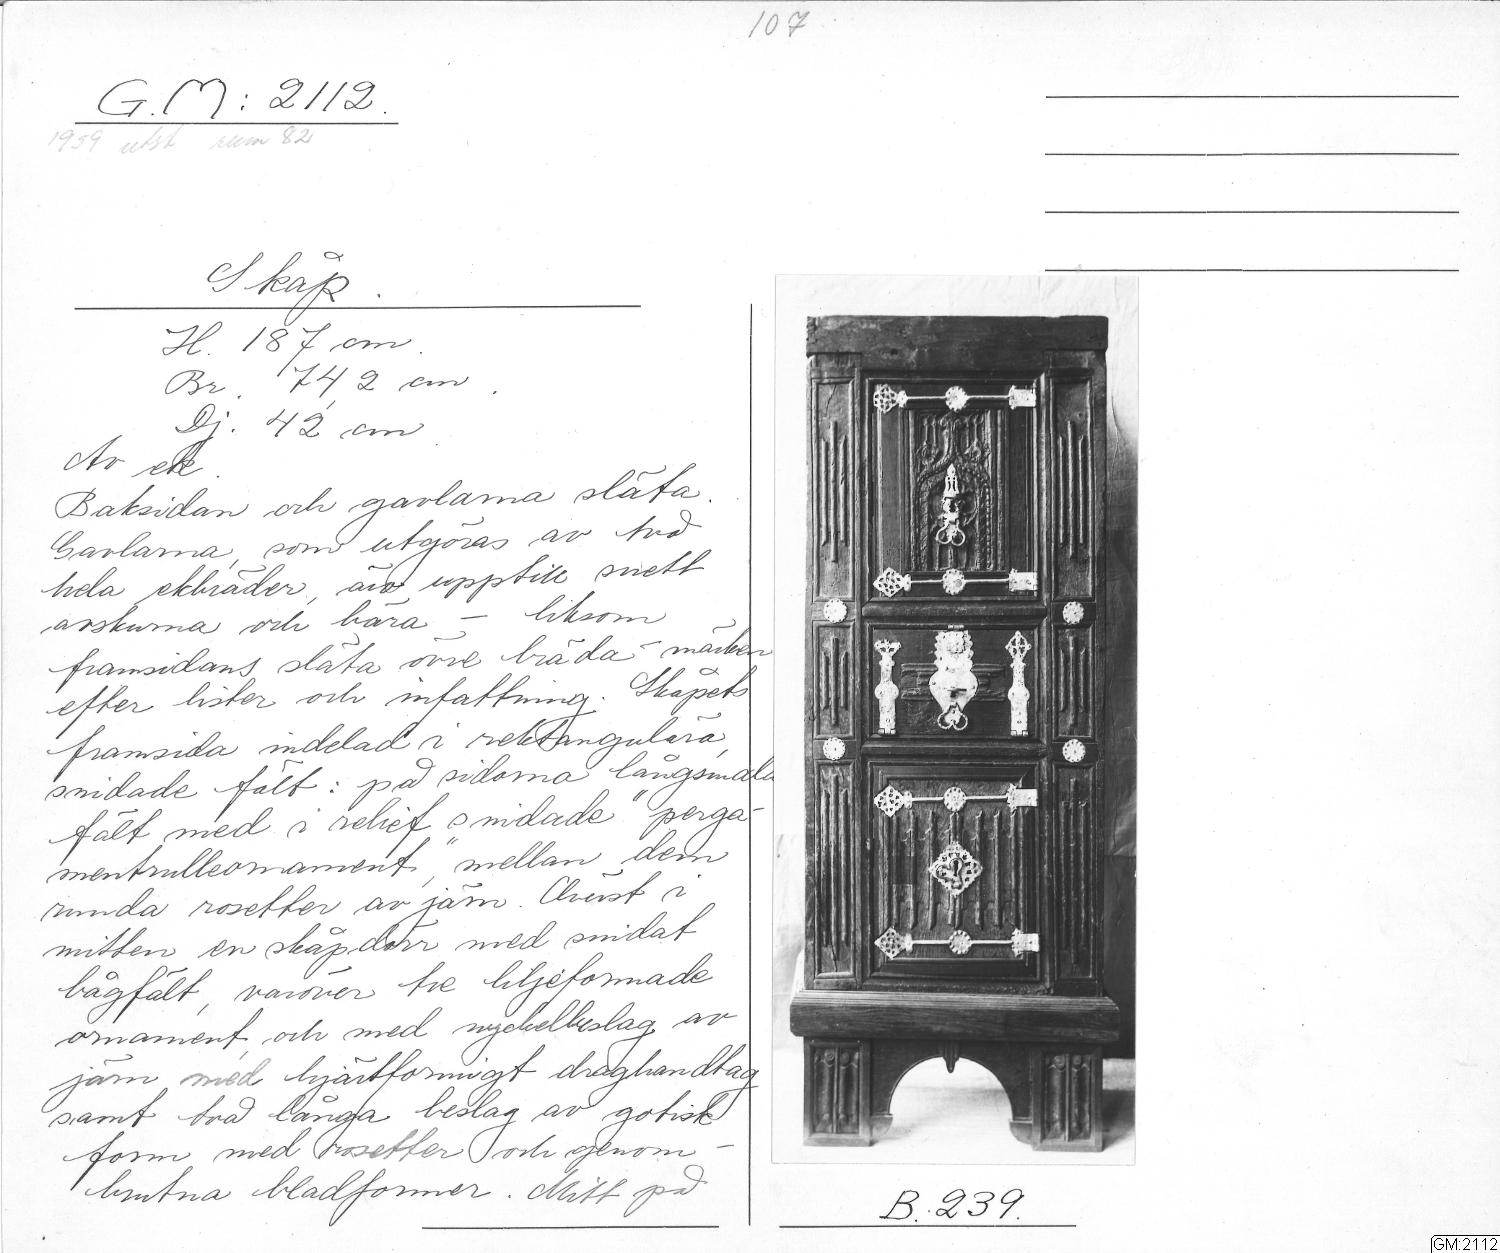 107
G.M: 2112.
1959 utst rum 82
Skåp.
H. 187 cm.
Br. 74,2 cm.
Dj. 42 cm.
Av ek.
Baksidan och gavlarna släta.
Gavlarna, som utgöras av två
hela ekbräder, äro upptill snett
avskurna och bära – liksom
framsidans släta övre bräda – märken
efter lister och infattning. Skåpets
framsida indelad i rektangulära,
snidade fält: på sidorna långsmala
fält med i relief snidade "perga-
mentrulleornament," mellan dem
runda rosetter av järn. Överst i
mitten en skåpdörr med snidat
bågfält, varöver tre liljeformade
ornament, och med nyckelbeslag av
järn med hjärtformigt draghandtag
samt två långa beslag av gotisk
form med rosetter och genom-
brutna bladformer. Mitt på
B. 239.
GM:2112